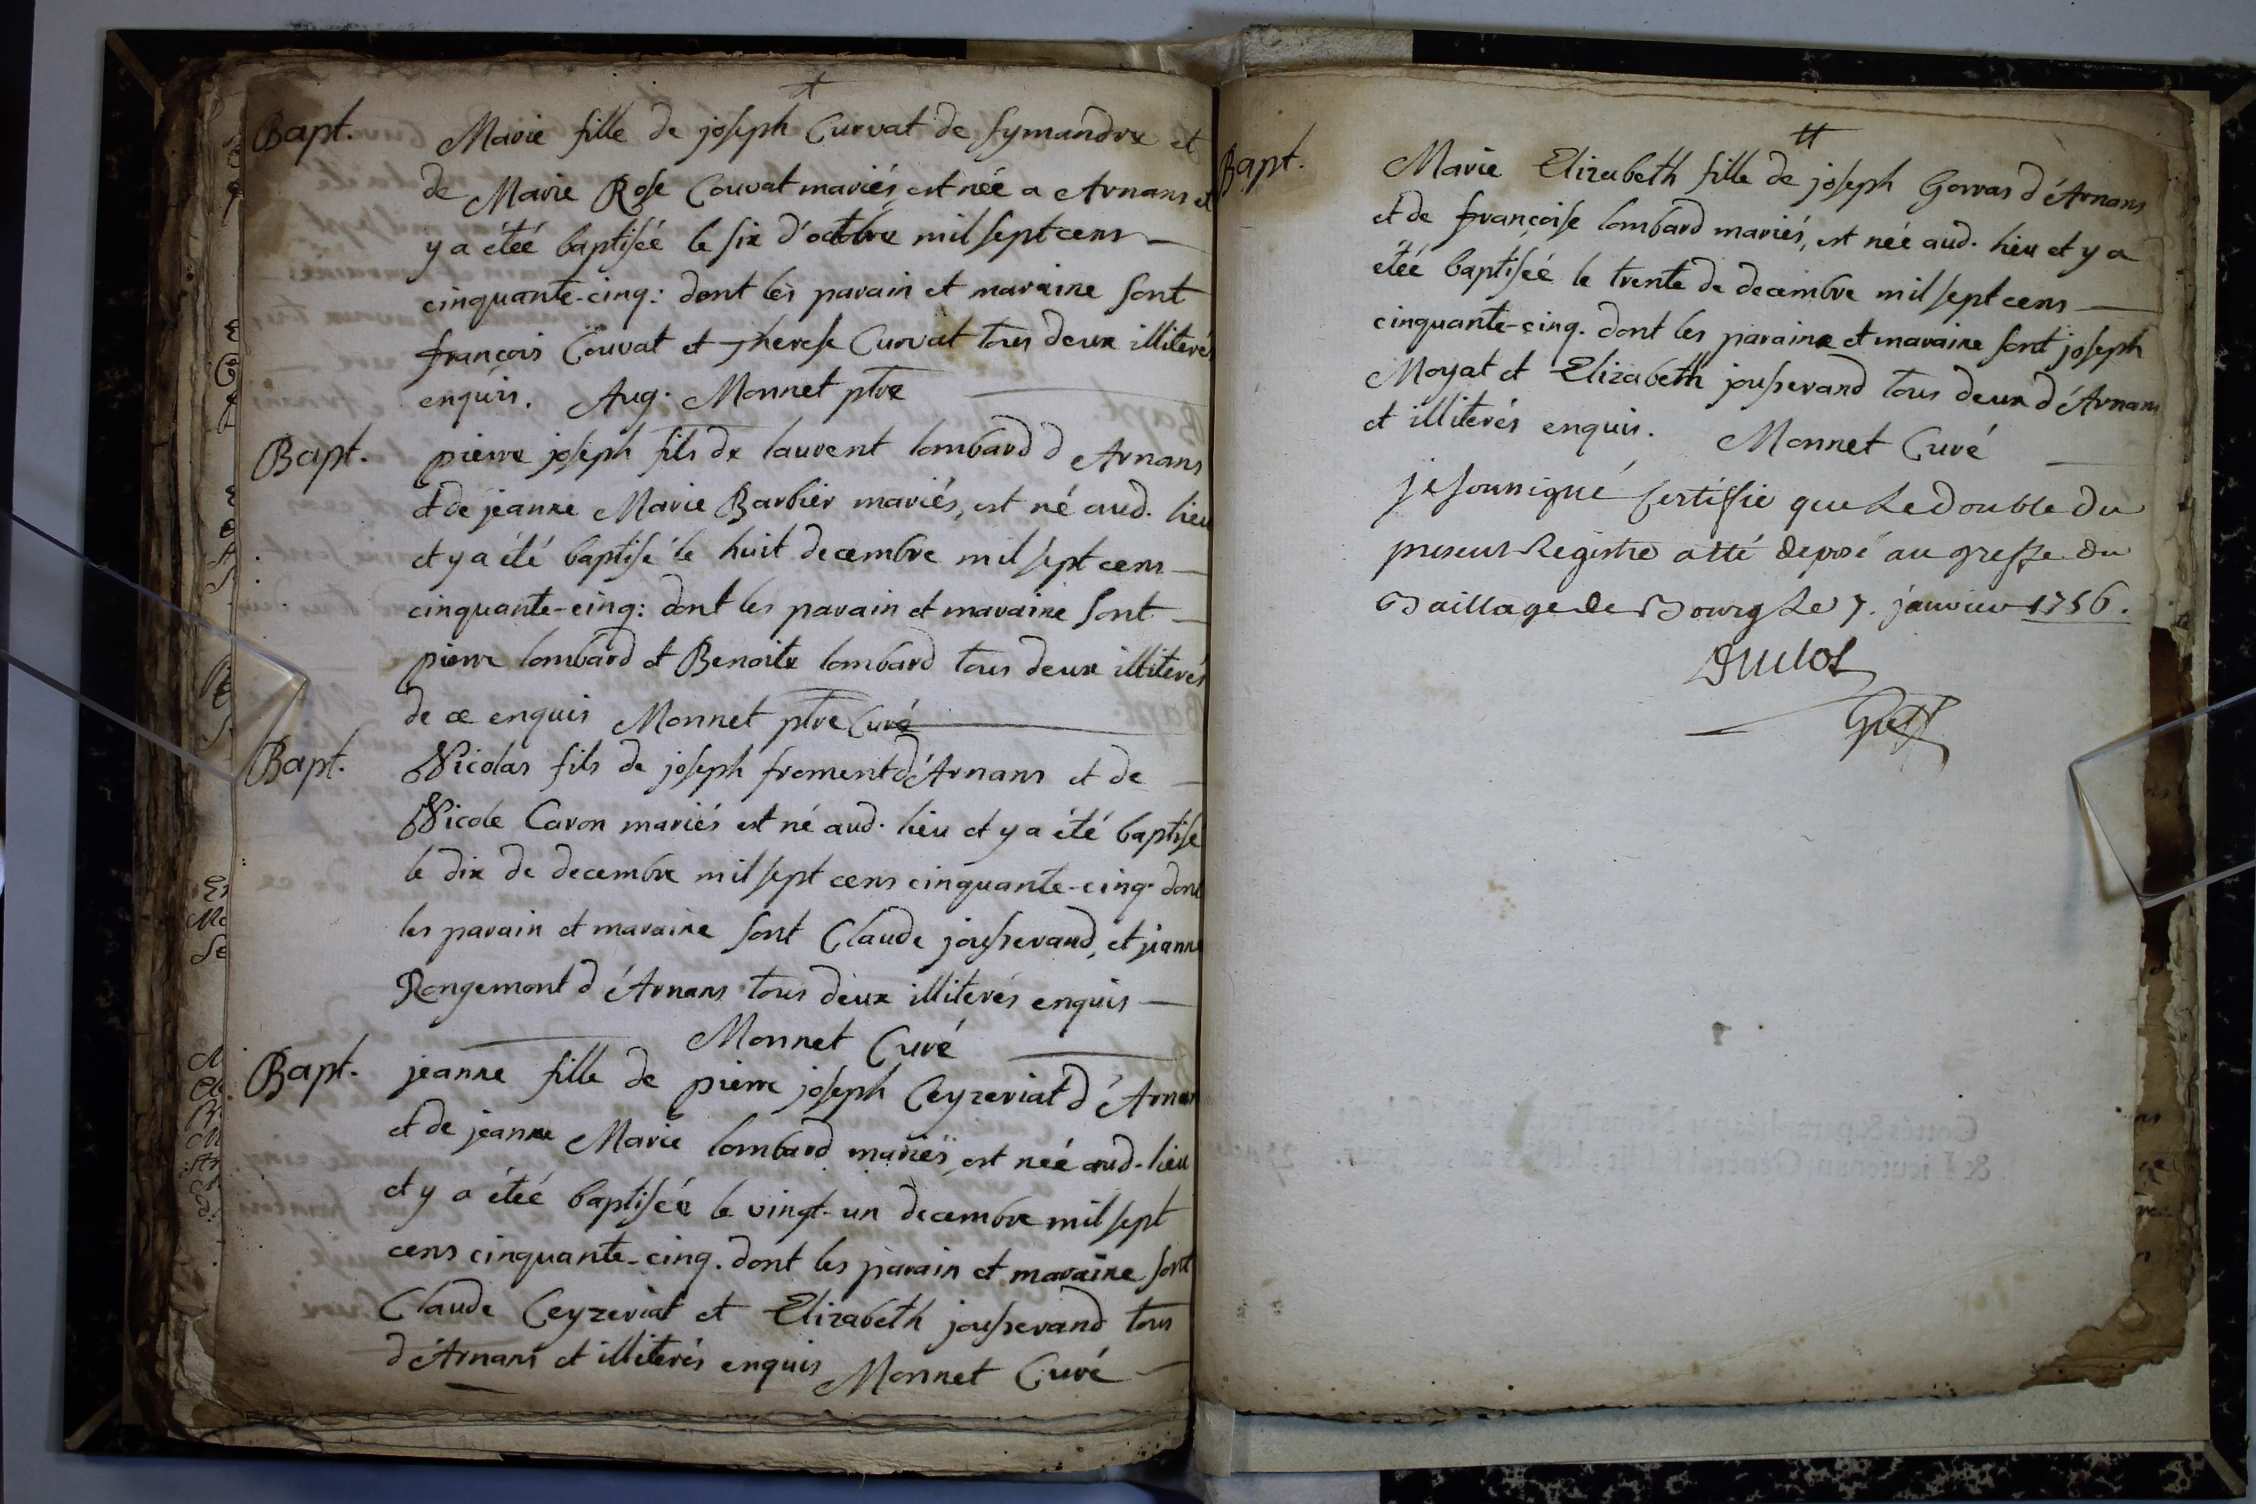 Bapt. Marie fille de joseph Curvat de symandre et
de Marie Rose Couvat mariés, est née a Arnans et
y a étéé baptiséé le six d'octobre mil sept cens
cinquante-cinq: dont les parain et maraine sont
françois Couvat et Therese Curvat tous deux illiterés
enquis. Aug. Monnet ptre
Bapt. pierre joseph fils de laurent lombard d Arnans
et de jeanne Marie Barbier mariés, est né aud. lieu
et y a été baptisé le huit decembre mil sept cens
cinquante-cinq: dont les parain et maraine sont
pierre lombard et Benoite lombard tous deux illiterés
de ce enquis Monnet ptre Curé
Bapt. Nicolas fils de joseph froment d'Arnans et de
Nicole Caron mariés est né aud. lieu et y a été baptisé
le dix de decembre mil sept cens cinquante-cinq. dont
les parain et maraine sont Claude jousserand, et jeanne
Rongemont d'Arnans tous deux illiterés enquis
Monnet Curé
Bapt. jeanne fille de pierre joseph Ceyzeriat d'Arnans
et de jeanne Marie lombard mariés, est néé aud. lieu
et y a étéé baptiséé le vingt-un decembre mil sept
cens cinquante-cinq. dont les parain et maraine sont
Claude Ceyzeriat et Elizabeth jousserand tous
d'Arnans et illiterés enquis Monnet Curé
Bapt. Marie Elizabeth fille de joseph Gorras d'Arnans
et de françoise lombard mariés, est néé aud. lieu et y a
étéé baptiséé le trente de decembre mil sept cens
cinquante-cinq. dont les paraine et maraine sont joseph
Moyat et Elizabeth jousserand tous deux d'Arnans
et illiterés enquis. Monnet Curé
je soussigné Certiffie que Le double du
present Registre a été deposé au greffe du
Baillage de Bourg Le 7. janvier 1756.
Duclos
Greff